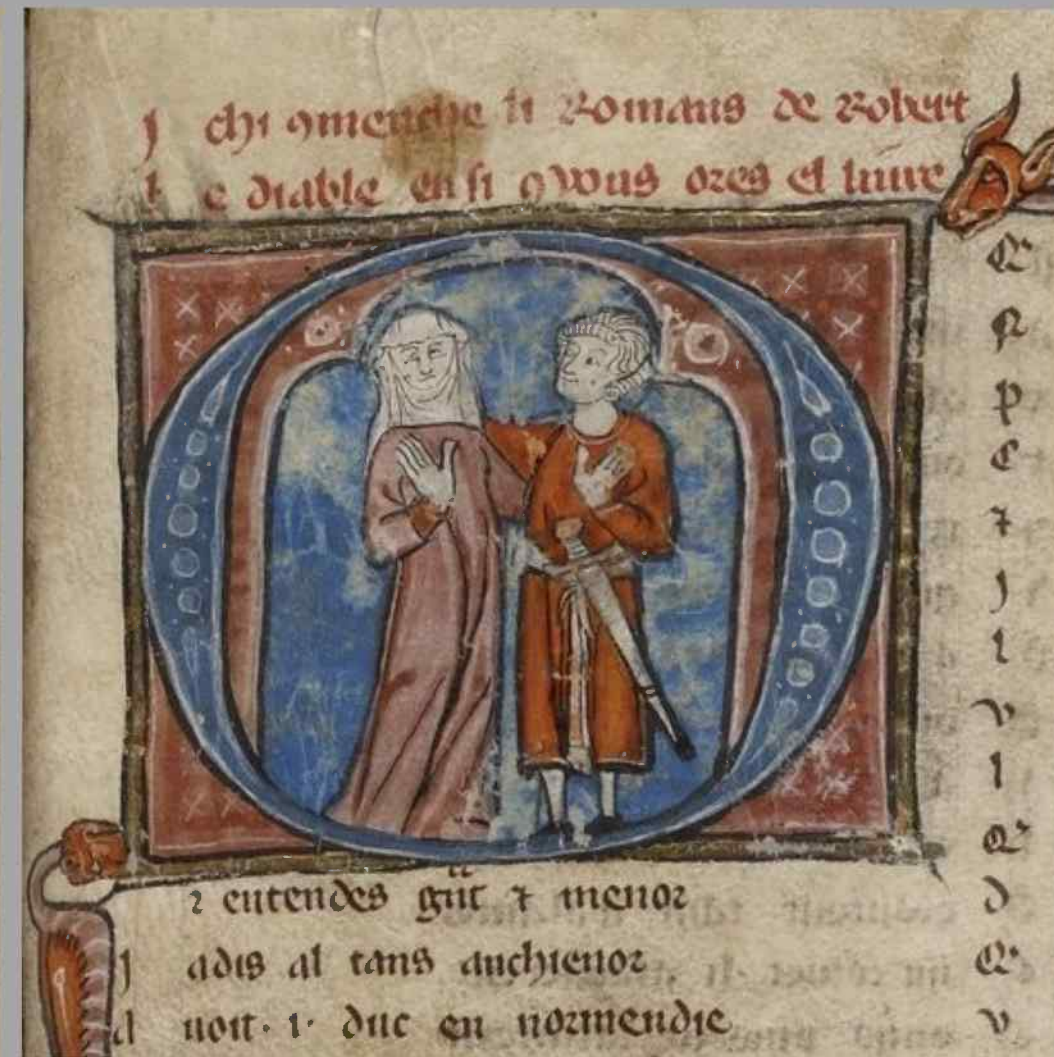 I chi ꝯmenche li Romans de Robert
l e diable ensi ꝯ vous ores el liure
O
r entendes gͣnt ⁊ menor
J adis al tans anchienor
A uoit · i · duc en normendie
Q
N
P
C
⁊
J
L
V
I
Q
D
Q
V